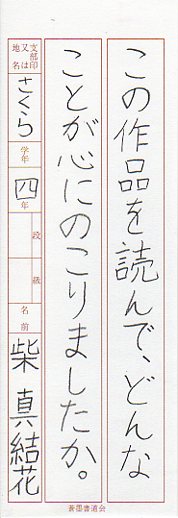 この作品を読んで、どんな
ことが心にのこりましたか。
支部印又は地名
さくら
学年
四年
段級
名前
柴真結花
蒼思書道会